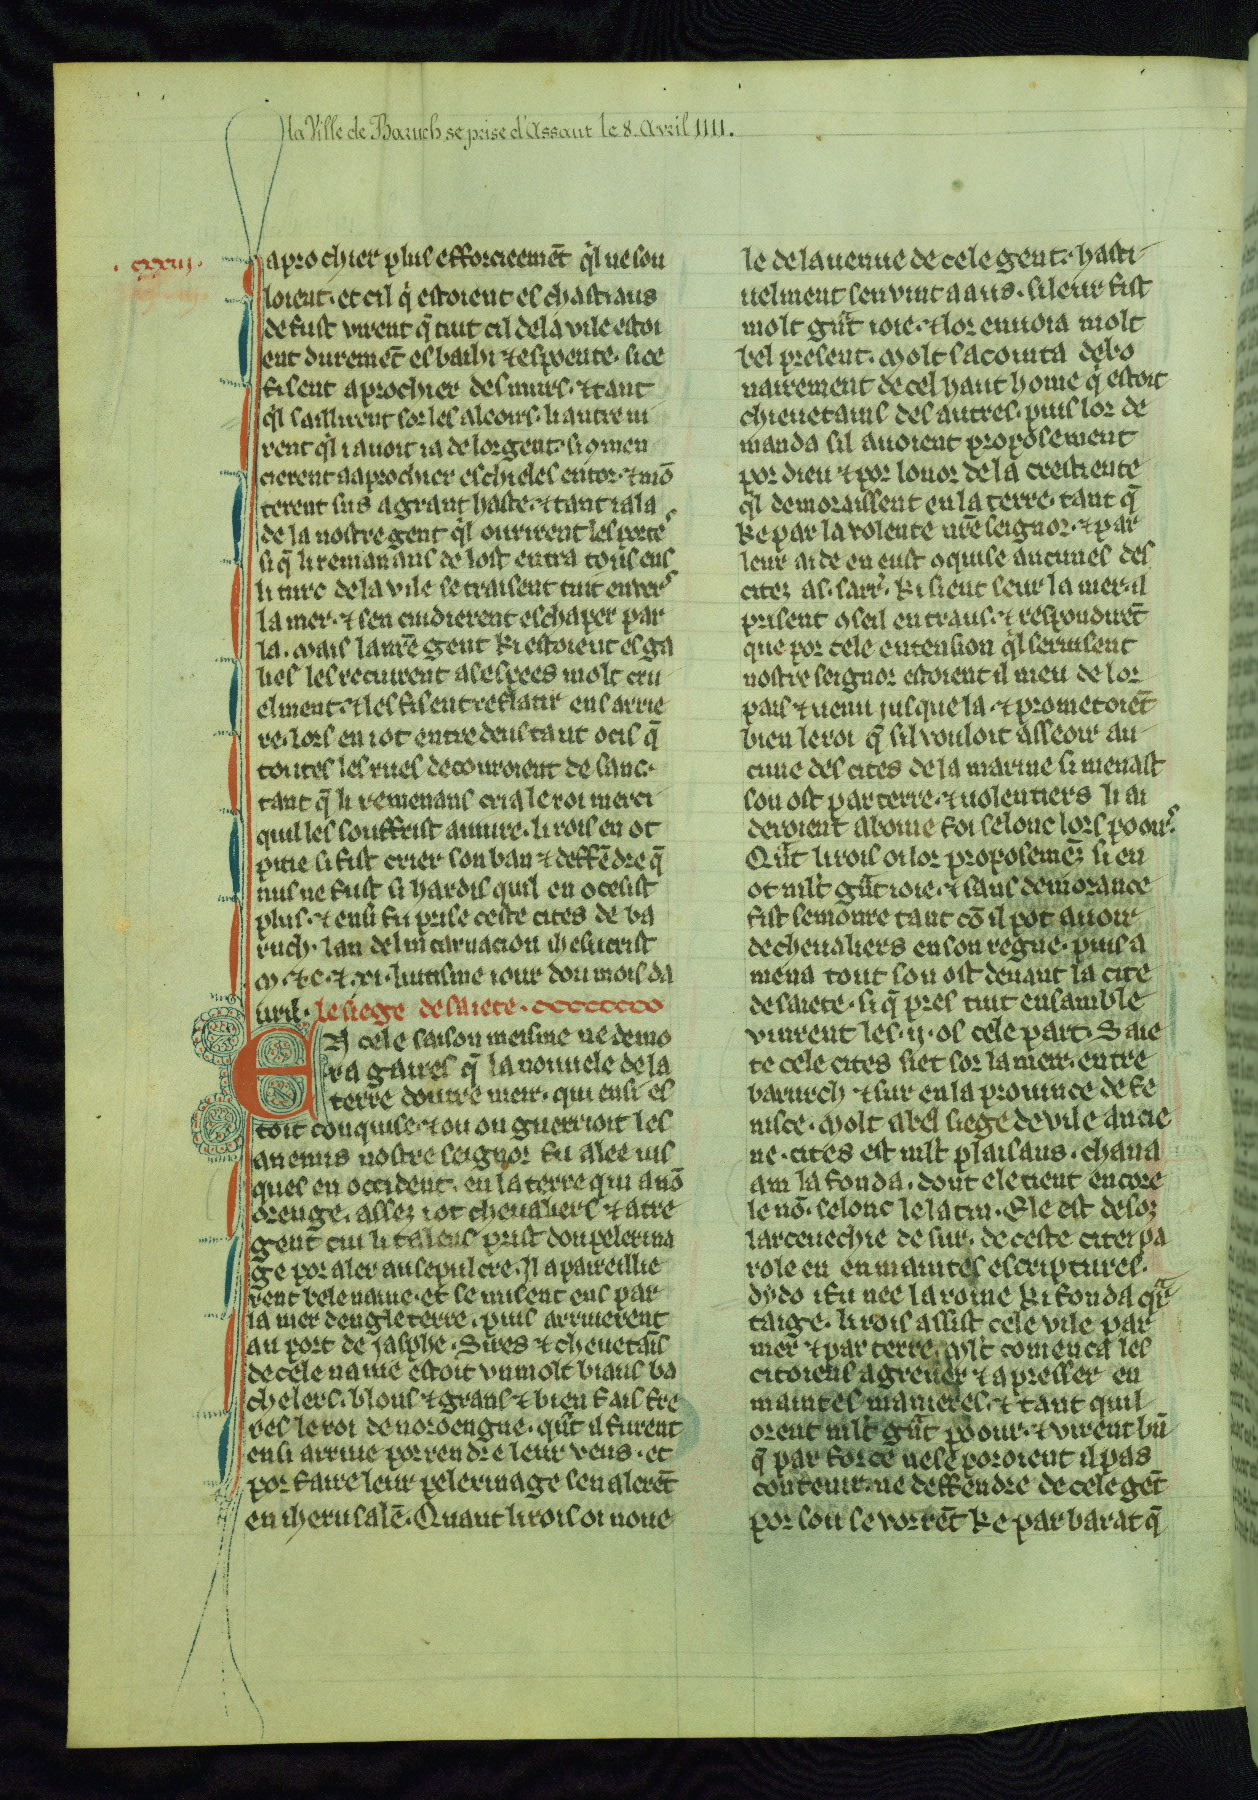 la Ville de Baruch se prise d'Assaut le 8. Avril 1111.
. cxxiij.
aprochier plus efforcieemēt q̉l ne sou
loient. et cil q̉ estoient es chastiaus
de fust virent q̄ tuit cil de la vile estoi
ent duremēt esbaihi ⁊ espoente. si ce
fisent aprochier des murs. ⁊ tant
q̉l saillirent sor les aleoirs. li autre vi
rent q̉l i avoit ia de lor gent. si ꝯmen
cierent a aprochier eschieles entor. ⁊ mō
terent sus a grant haste. ⁊ tant i ala
de la nostre gent q̉l ouvrirent les portes
si q̄ li remanans de lost entra tous ens
li turc de la vile se traisent tuit envers
la mer. ⁊ sen cuidierent eschaper par
la. Mais la nr̄e gent ki estoient es ga
lies les recuirent as espees molt cru
elment. ⁊ les fisent reflatir ens arrie
re. lors en i ot entredeus tant ocis q̄
toutes les rues decouroient de sanc.
tant q̄ li remenans cria le roi merci
quil les souffrist a vivre. li rois en ot
pitie si fist crier son ban ⁊ deffēdre q̄
nus ne fust si hardis quil en ocesist
plus. ⁊ ensi fu prise ceste cites de ba
ruch. lan del incarnacion ihesucrist
M. ⁊ c. ⁊ xi. luitisme iour dou mois da
uril. le siege de saiete.
En cele saison meisme ne demo
ra gaires q̄ la nouuele de la
terre doutre mer. qui ensi es
toit conquise. ⁊ ou on guerrioit les
anemis nostre seignor fu alee jus
ques en occident. en la terre qui a nō
orenge. assez i ot chevaliers ⁊ atre
gent cui li talens prist dou pelerina
ge por aler au sepulcre. Il apareillie
rent bele navie. et se misent ens par
la mer dengleterre. puis arriverent
au port de jasphe. Sires ⁊ chevetais
de cele navie estoit un molt biaus ba
chelers. blons ⁊ grans ⁊ bien fais fre
res le roi de noroengue. q̄nt il furent
ensi arrive por rendre leur veus. et
por faire leur pelerinage sen alerēt
en iherusalē. Quant li rois oi nouve
le de la venue de cele gent. hasti
uelment sen vint a aus. si leur fist
molt gnt ioie. ⁊ lor envoia molt
bel present. Molt sacointa debo
nairement de cel haut home q̉ estoit
chievetains des autres. puis lor de
manda sil avoient proposement
por dieu ⁊ por lonor de la crestiente
q̉l demoraissent en la terre. tant q̄
ke par la volente nr̄e seignor. ⁊ par
leur aide en eust ꝯquise aucunes des
citez as. sarr̉. ki sieent seur la mer. il
prisent ꝯseil entraus. ⁊ respondirēt
que por cele entension q̉l servisent
nostre seignor estoient il meu de lor
pais ⁊ venu jusque la. ⁊ prometoiēt
bien le roi q̄ sil vouloit asseoir au
cune des cites de la marine si menast
son ost par terre. ⁊ volentiers li ai
deroient a bone foi selonc lors pooirs.
Qn̄t li rois oi lor proposemēz si en
ot mlt gnt ioie. ⁊ sans demorance
fist semonre tant cō il pot avoir
de chevaliers en son regne. puis a
mena tout son ost devant la cite
de saiete. si q̄ pres tuit ensamble
vinrent les .ij. os cele part. Saie
te cele cites siet sor la mer. entre
barurch ⁊ sur en la province de fe
nisce. Molt a bel siege de vile ancie
ne. cites est mlt plaisans. chana
am la fonda. dont ele tient encore
le nō. selonc le latin. Ele est desoz
larcevechie de sur. de ceste citei pa
role en en maintes escriptures.
dydo i fu nee la roine ki fonda q̄r
taige. li rois assist cele vile par
mer ⁊ par terre. Mlt comenca les
citoiens a grever ⁊ a presser en
maintes manieres. ⁊ tant quil
orent mlt gnt poour. ⁊ virent bn̄
q̄ par force ne se poroient il pas
contenir. ne deffendre de cele gēt
por sou se vorrēt ke par barat q̄